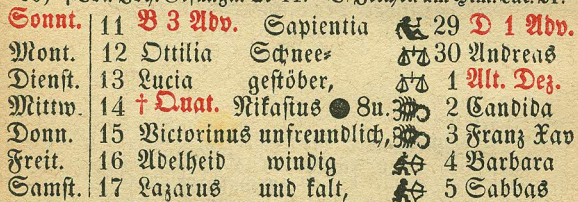 Sonnt. 11 B 3 Adv. Sapientia 29 D 1 Adv.
Mont. 12 Ottilia Schnee= 30 Andreas
Dienst. 13 Lucia gestöber, 1 Alt. Dez.
Mittw. 14 † Quat. Nikasius ● 8u. 2 Candida
Donn. 15 Victorinus unfreundlich, 3 Franz Xav
Freit. 16 Adelheid windig 4 Barbara
Samst. 17 Lazarus und kalt, 5 Sabbas